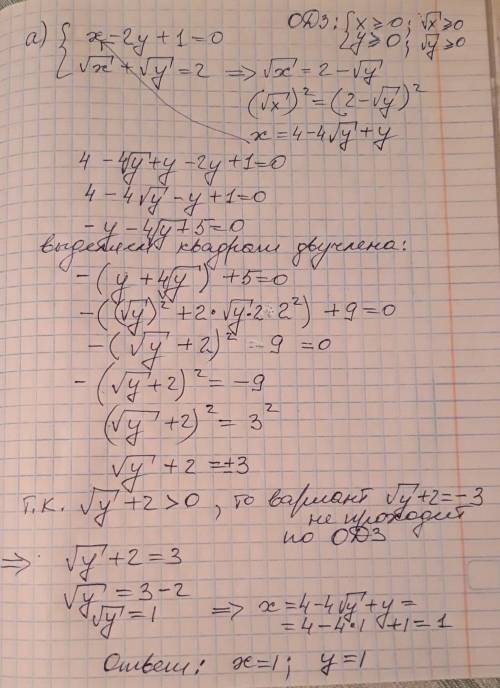 а) { x - 2y + 1 = 0   ОДЗ: { x ⩾ 0; √x ⩾ 0
{ √x + √y = 2 ⇒ √x = 2 - √y   { y ⩾ 0; √y ⩾ 0
(√x)² = (2 - √y)²
x = 4 - 4√y + y
4 - 4√y + y - 2y + 1 = 0
4 - 4√y - y + 1 = 0
- y - 4√y + 5 = 0
выделяем квадрат двучлена:
- (y + 4√y) + 5 = 0
- ((√y)² + 2·√y·2 + 2²) + 9 = 0
- (√y + 2)² - 9 = 0
- (√y + 2)² = -9
(√y + 2)² = 3²
√y + 2 = ±3
т.к. √y + 2 > 0, то вариант √y + 2 = -3
не проходит
по ОДЗ
⇒ √y + 2 = 3
√y = 3 - 2
√y = 1 ⇒ x = 4 - 4√y + y =
= 4 - 4·1 + 1 = 1
Ответ: x = 1; y = 1